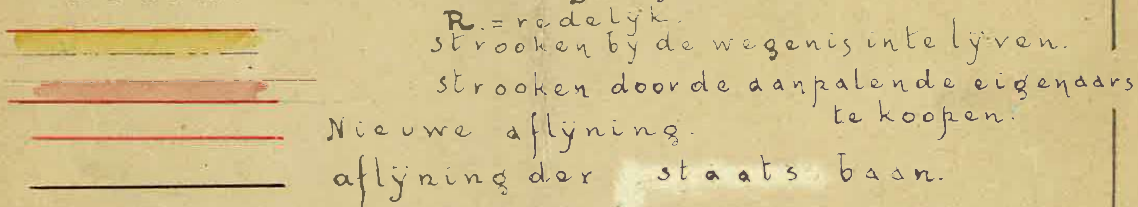 R. = redelyk.
strooken by de wegenis in te lyven.
strooken door de aanpalende eigenaars
te koopen.
Nieuwe aflyning.
aflyning der staats baan.